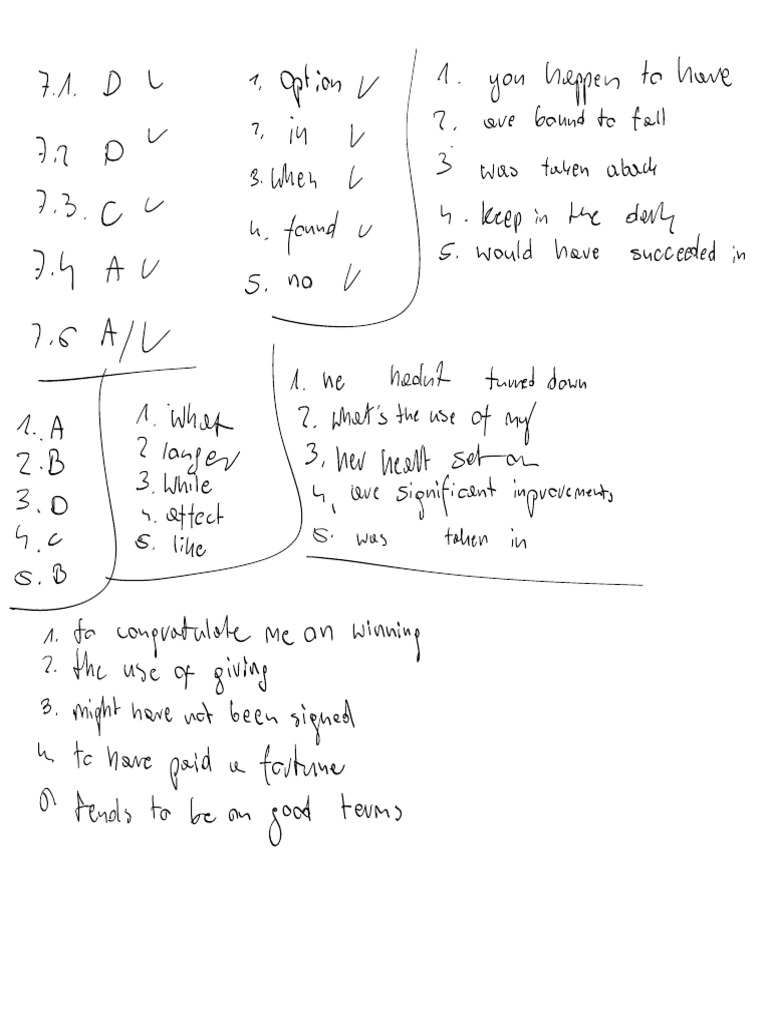 7.1. D
7.2 D
7.3. C
7.4 A
7.5 A/
1, option
2, in
3. when
4. found
5. no
1. you happen to have
2. are bound to fall
3 was taken aback
4. keep in the dark
5. would have succeeded in
1. A
2. B
3. D
4. C
5. B
1. what
2 longer
3. while
4. effect
5. like
1. he hadn't turned down
2. what's the use of my
3, her heart set on
4, are significant improvements
5. was taken in
1. to congratulate me on winning
2. the use of giving
3. might have not been signed
4 to have paid a fortune
5 tends to be on good terms